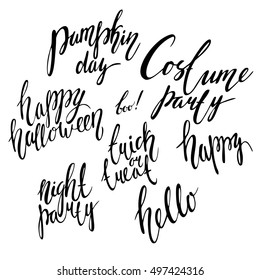 pumpkin
day
Costume
party
happy
halloween
boo!
trick
or
treat
happy
night
party
hello
shutterstock.com · 497424316